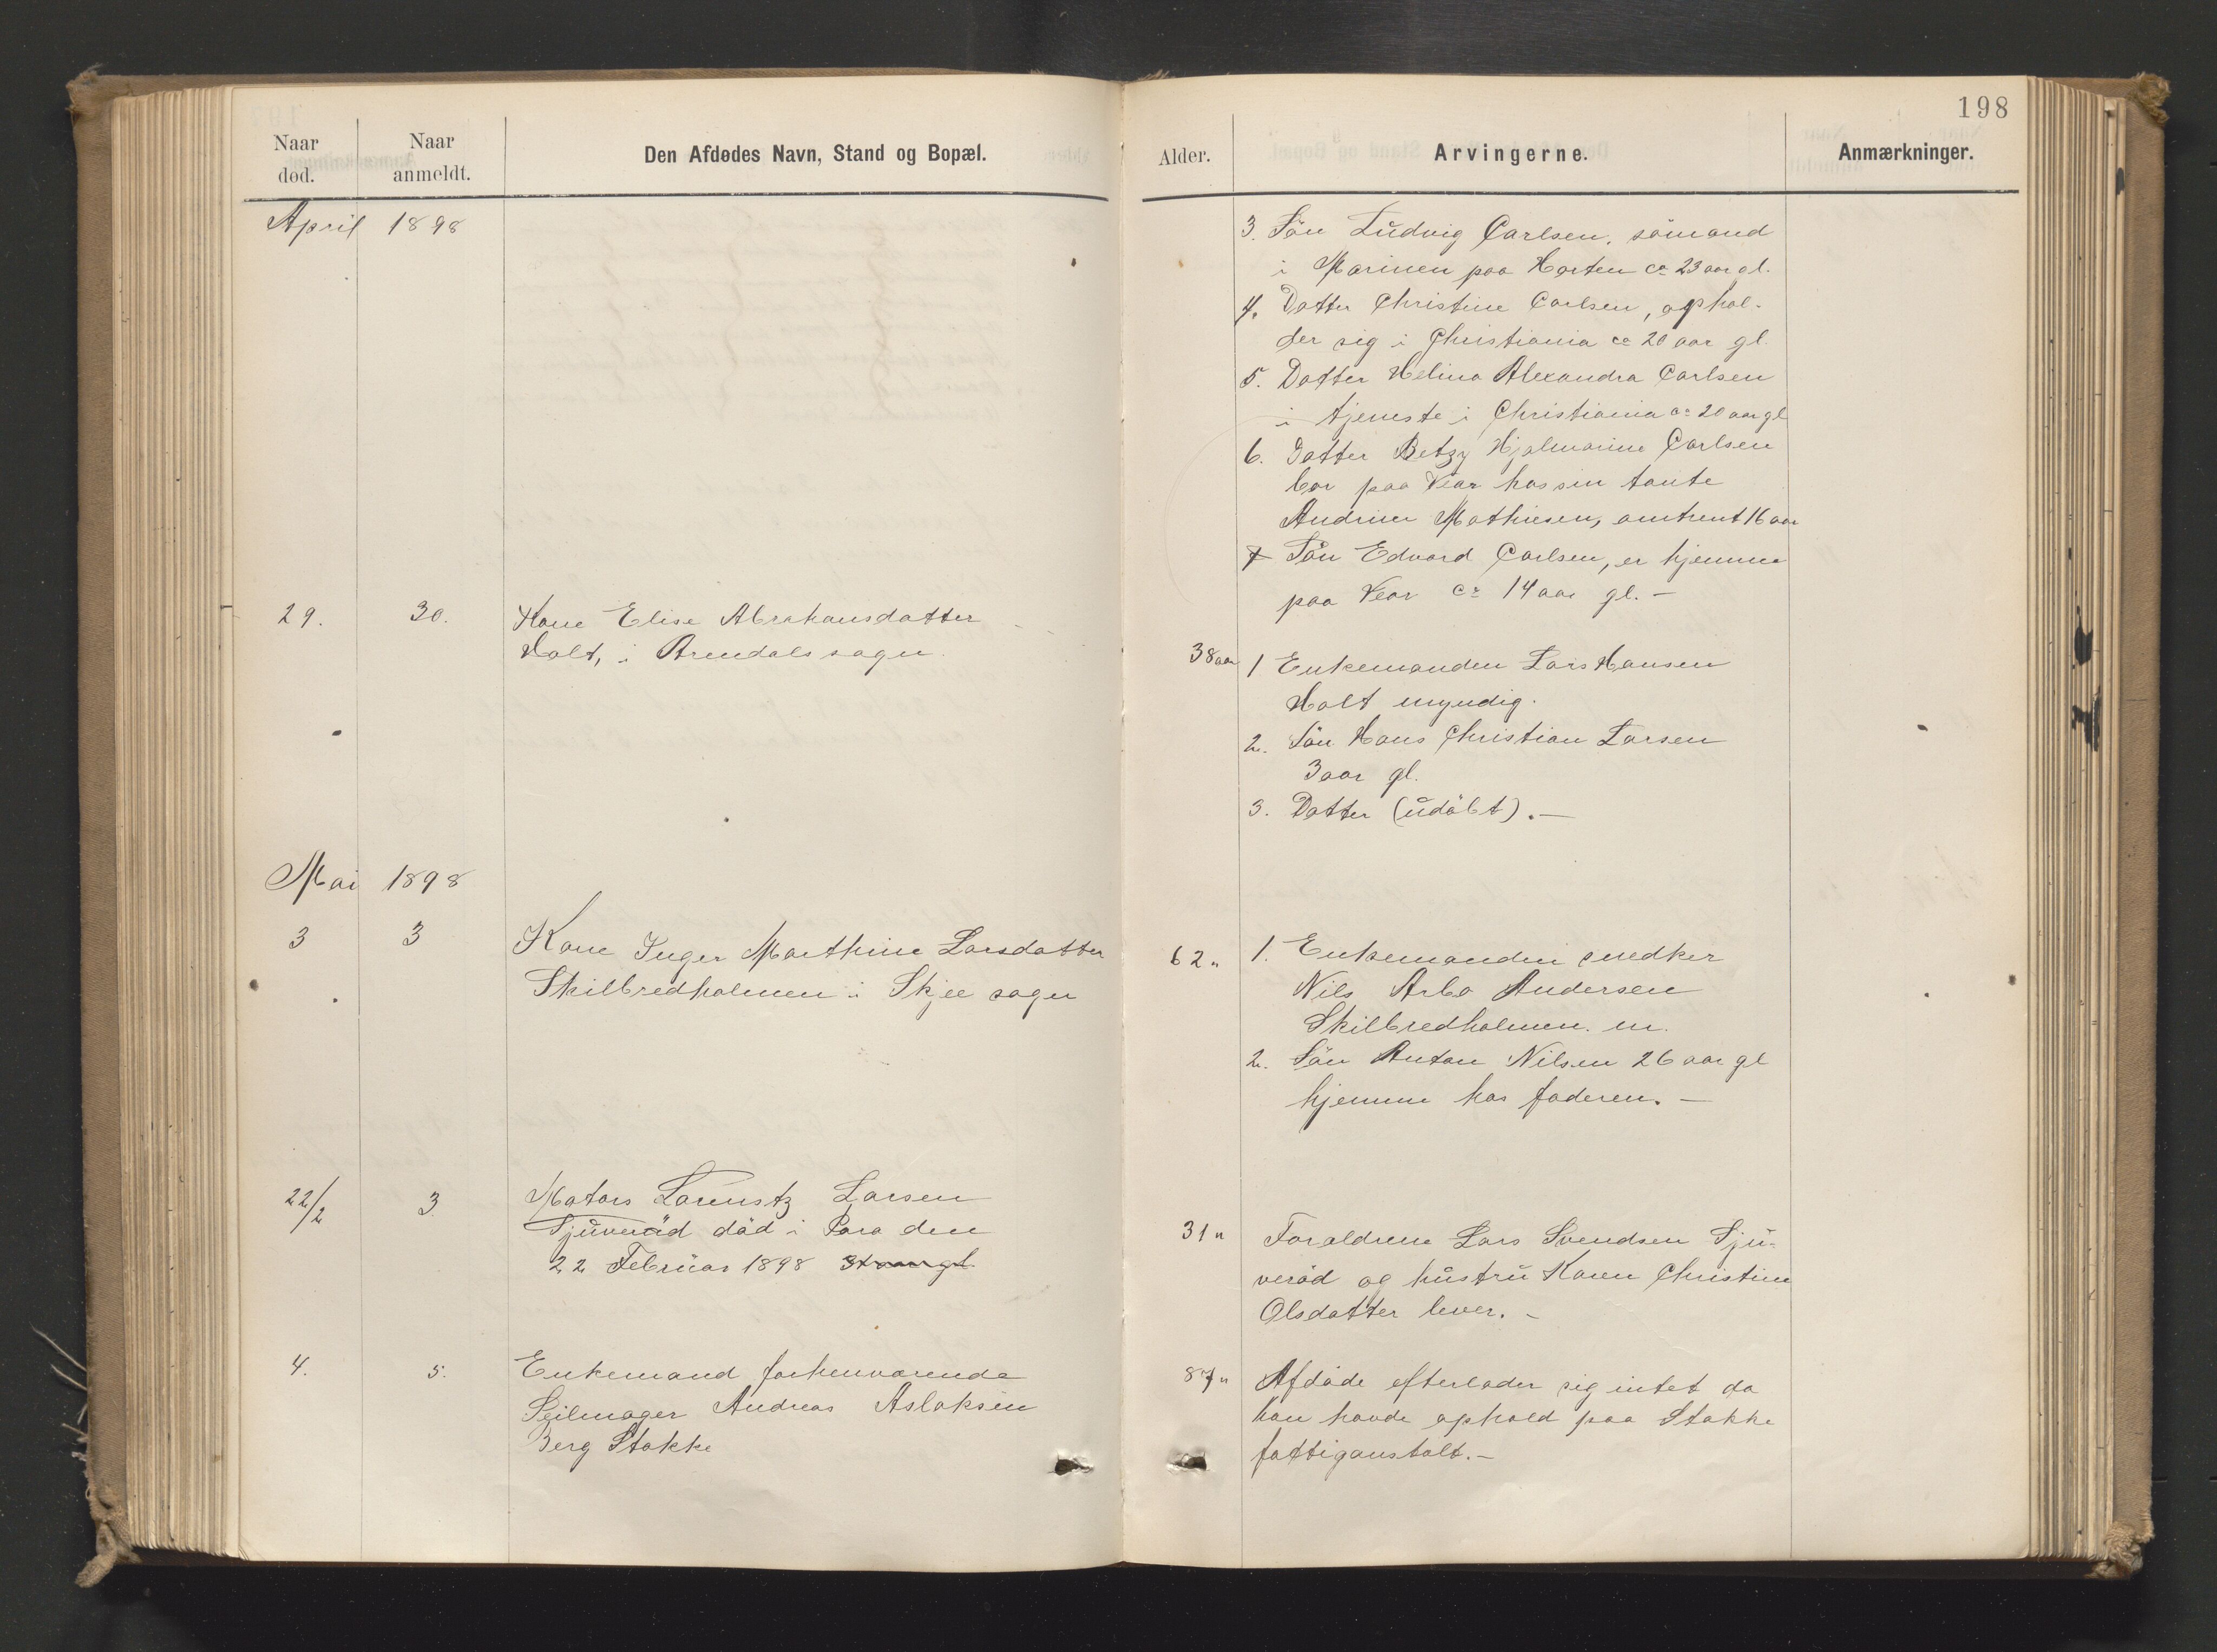 198
Naar død.
Naar anmeldt.
Den Afdødes Navn, Stand og Bopæl.
Alder.
Arvingerne.
Anmærkninger.
April 1898
3. Sön Ludvig Carlsen, sömand
i Marinen paa Horten ca 23 aar gl.
4. Datter Christine Carlsen, ophol-
der sig i Christiania ca 20 aar gl.
5. Datter Helina Alexandra Carlsen
i tjeneste i Christiania ca 20 aar gl
6. Datter Betzy Hjalmarine Carlsen
bor paa Vear hos sin tante
Andrine Mathiesen, omtrent 16 aar
7 Sön Edvard Carlsen, er hjemme
paa Vear ca 14 aar gl. -
29. 30. Kone Elise Abrahamsdatter
Holt, i Arendals sogn.
38 aar 1 Enkemanden Lars Hansen
Holt myndig.
2. Sön Hans Christian Larsen
3 aar gl.
3. Datter (udöbt). -
Mai 1898
3 3 Kone Inger Marthine Larsdatter
Skilbredholmen i Skjee sogn
62 " 1. Enkemanden snedker
Nils Arbo Andersen
Skilbredholmen. m.
2. Sön Anton Nilsen 26 aar gl
hjemme hos faderen. -
22/2 3 Mators Lorenstz Larsen
Sjuveröd död i Para den
22 Februar 1898 31 aar gl.
31 " Foraldrene Lars Svendsen Sju-
veröd og hustru Karen Christine
Olsdatter lever. -
4. 5. Enkemand forhenvarende
Seilmager Andreas Aslaksen
Berg Stokke
87 " Afdöde efterlader sig intet da
han havde ophold paa Stokke
fattiganstalt. -